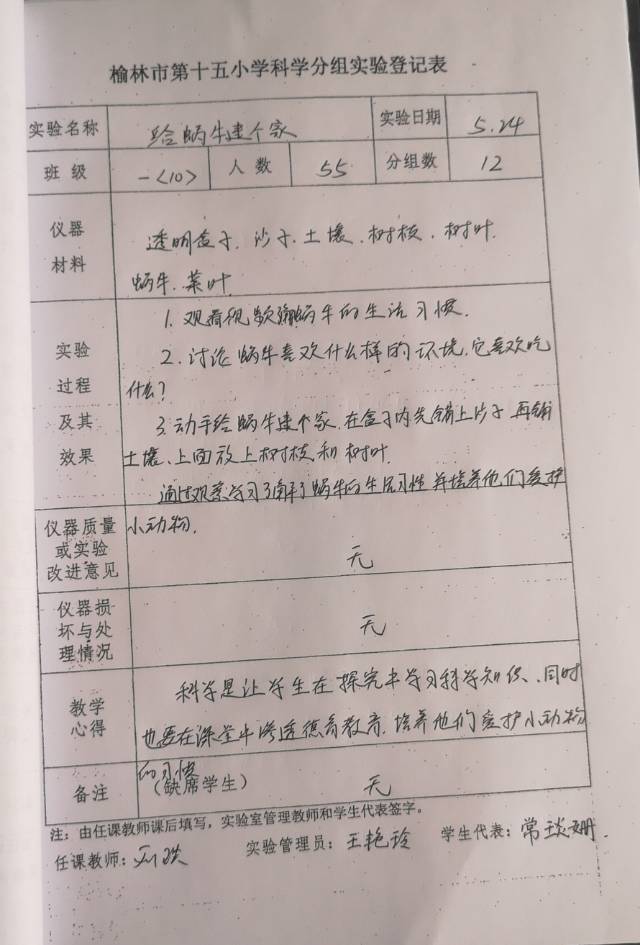 榆林市第十五小学科学分组实验登记表
实验名称 给蜗牛建个家 实验日期 5.24
班级 一<10> 人数 55 分组数 12
仪器
材料
透明盒子.沙子.土壤.树枝.树叶.
蜗牛.菜叶
实验
过程
及其
效果
1.观看视频蜗牛的生活习惯.
2.讨论蜗牛喜欢什么样的环境.它喜欢吃
什么?
3.动手给蜗牛建个家.在盒子内先铺上沙子再铺
土壤、上面放上树枝和树叶.
通过观察学习了解了蜗牛的生活习性并培养他们爱护
小动物.
仪器质量
或实验
改进意见
无
仪器损
坏与处
理情况
无
教学
心得
科学是让学生在探究中学习科学知识、同时
也要在课堂中渗透德育教育.培养他们爱护小动物
的习惯
备注 (缺席学生) 无
注：由任课教师课后填写，实验室管理教师和学生代表签字。
任课教师: 实验管理员：王艳玲 学生代表：常珊.